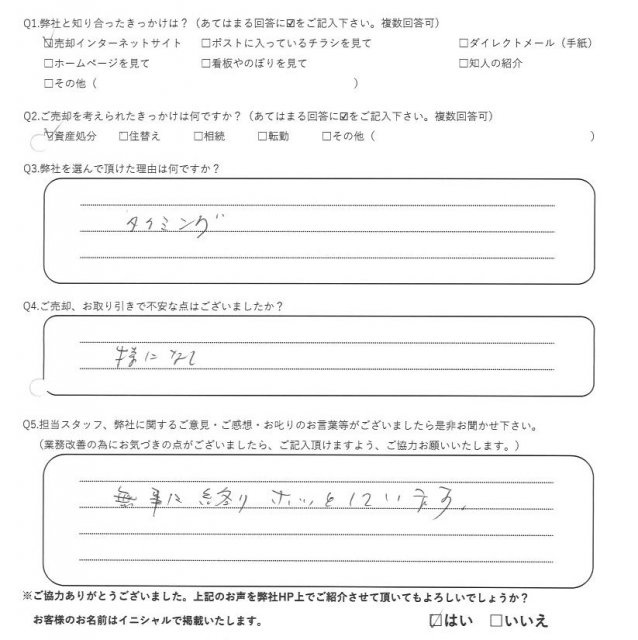 Q1.弊社と知り合ったきっかけは？（あてはまる回答に☑をご記入下さい。複数回答可）
☑売却インターネットサイト　□ポストに入っているチラシを見て　□ダイレクトメール（手紙）
□ホームページを見て　□看板やのぼりを見て　□知人の紹介
□その他（　）
Q2.ご売却を考えられたきっかけは何ですか？（あてはまる回答に☑をご記入下さい。複数回答可）
☑資産処分　□住替え　□相続　□転勤　□その他（　）
Q3.弊社を選んで頂けた理由は何ですか？
タイミング
Q4.ご売却、お取り引きで不安な点はございましたか？
様になし
Q5.担当スタッフ、弊社に関するご意見・ご感想・お叱りのお言葉等がございましたら是非お聞かせ下さい。
（業務改善の為にお気づきの点がございましたら、ご記入頂けますよう、ご協力お願いいたします。）
無事に終り ホッとしています。
※ご協力ありがとうございました。上記のお声を弊社HP上でご紹介させて頂いてもよろしいでしょうか？
お客様のお名前はイニシャルで掲載いたします。　☑はい　□いいえ